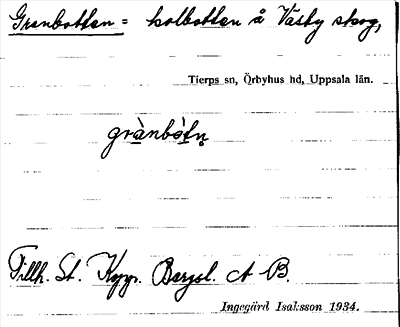 Granbotten = kolbotten å Väsby skog,
Tierps sn, Örbyhus hd, Uppsala län.
grànbòtn̥
Tillh. St. Koppr. Bergsl. A-B.
Ingegärd Isaksson 1934.